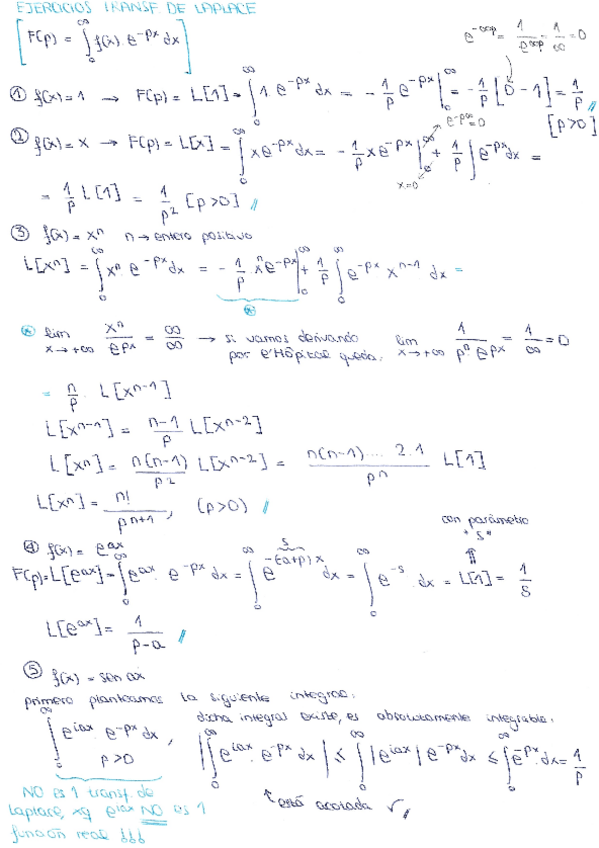 EJERCICIOS TRANSF DE LAPLACE
[F(p) = ∫₀^∞ f(x) e^{-px} dx]
e^{-∞p} = 1/e^{∞p} = 1/∞ = 0
① f(x) = 1 → F(p) = L[1] = ∫₀^∞ 1 e^{-px} dx = -1/p e^{-px} |₀^∞ = -1/p [0 - 1] = 1/p //
[p>0]
② f(x) = x → F(p) = L[x] = ∫₀^∞ x e^{-px} dx = -1/p x e^{-px} |₀^∞ + 1/p ∫ e^{-px} dx =
e^{-p∞} = 0
x=0
= 1/p L[1] = 1/p² [p>0] //
③ f(x) = xⁿ n → entero positivo
L[xⁿ] = ∫₀^∞ xⁿ e^{-px} dx = -1/p xⁿ e^{-px} |₀^∞ + 1/p ∫₀^∞ e^{-px} x^{n-1} dx =
lim x→+∞ xⁿ/e^{px} = ∞/∞ → si vamos derivando por L'Hôpital queda: lim x→+∞ 1/(pⁿ e^{px}) = 1/∞ = 0
= n/p · L[x^{n-1}]
L[x^{n-1}] = (n-1)/p L[x^{n-2}]
L[xⁿ] = n(n-1)/p² L[x^{n-2}] = n(n-1)....2.1/pⁿ L[1]
L[xⁿ] = n!/p^{n+1}, (p>0) //
④ f(x) = e^{ax}
con parámetro "S"
F(p) = L[e^{ax}] = ∫₀^∞ e^{ax} e^{-px} dx = ∫₀^∞ e^{-(a+p)x} dx = ∫₀^∞ e^{-s} dx = L[1] = 1/S
S
L[e^{ax}] = 1/(p-a) //
⑤ f(x) = sen ax
primero planteamos la siguiente integral:
∫₀^∞ e^{iax} e^{-px} dx, p>0
dicha integral existe, es absolutamente integrable.
|∫₀^∞ e^{iax} e^{-px} dx| ≤ ∫₀^∞ |e^{iax}| e^{-px} dx ≤ ∫₀^∞ e^{-px} dx = 1/p
está acotada ✓//
NO es 1 transf. de
Laplace, xq e^{iax} NO es 1
función real !!!